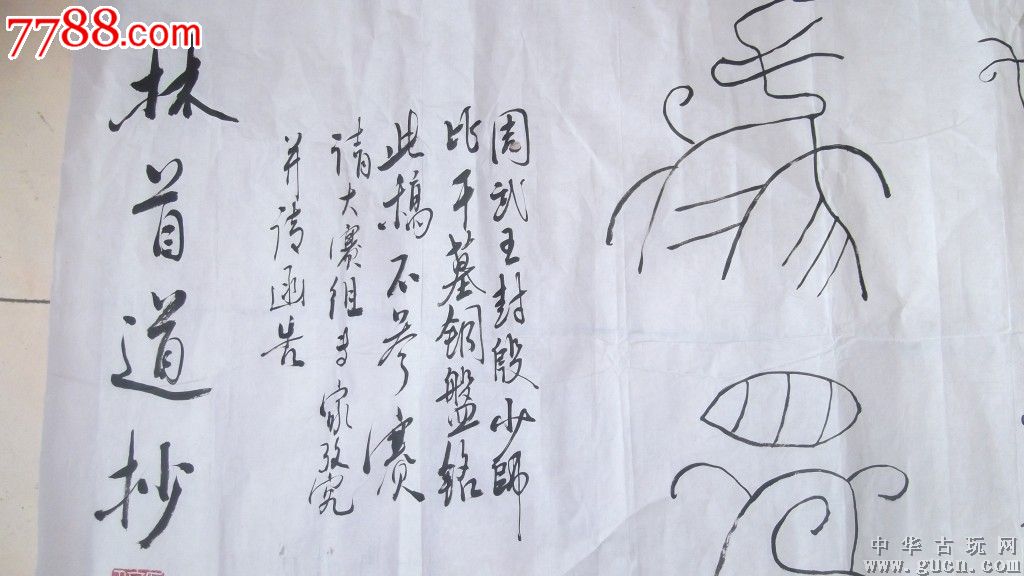 周武王封殷少師
比干墓銅盤銘
此稿不參賽
请大赛组专家考究
并请函告
林首道抄
7788.com
中华古玩网
www.gucn.com